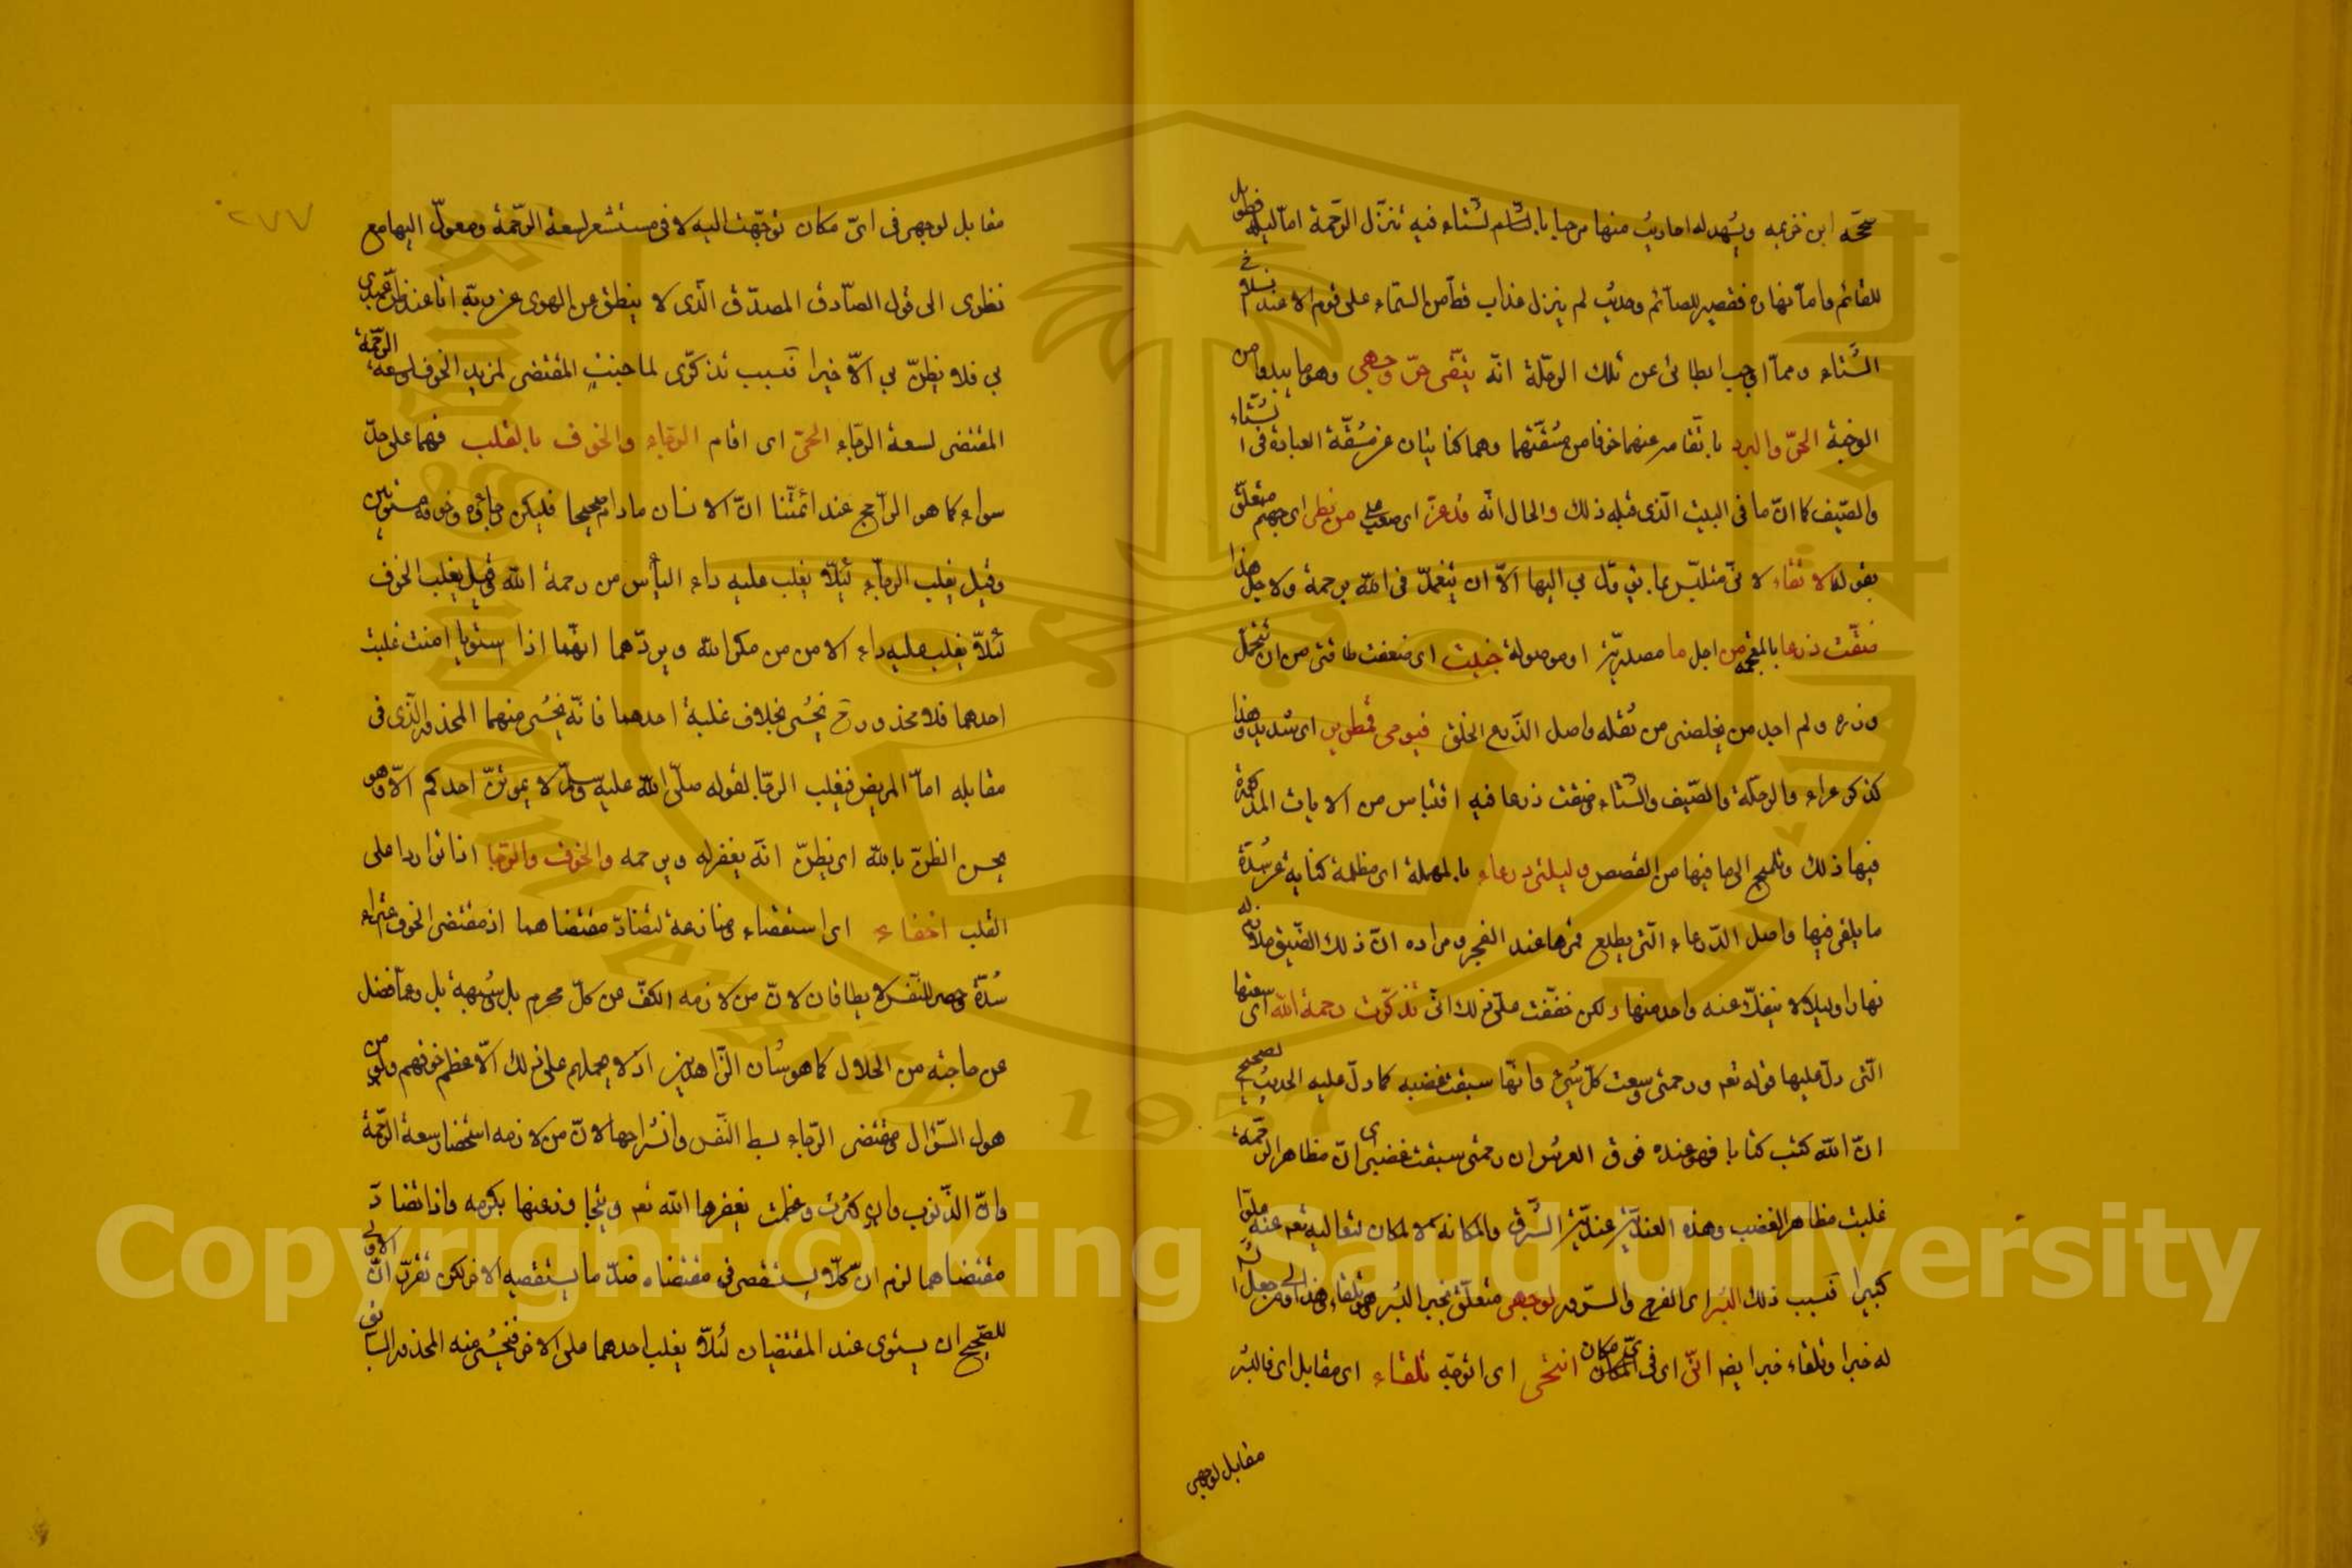 صححه ابن خزيمه ويشهد له احاديث منها مرحبا بالشتاء فيه تنزل الرحمة اما ليله فطويل
للقائم واما نهاره فقصير للصائم وحديث لم ينزل عذاب قط من السماء على قوم الا عند انسلاخ
الشتاء ومما اوجب ابطائى عن تلك الرحلة انه يتقى حرّ وجهي وهو ما يبدو من
الوجه الحرّ والبرد باتقاء عنهما خوفا من مشقتهما وهما كنايتان عن مشقة العبادة فى الشتاء
والصيف كما ان ما فى البيت الذى قبله ذلك والحال انه قد عزّ اى صعب على من لظى اى جهنم متعلق
بقوله الاتقاء لانى متلبس بما يؤل بي اليها الا ان يتغمدنى الله برحمة ولاجل هذا
ضقت ذرعا بالمعجمة من اجل ما مصدرية او موصولة جنيت اى ضعفت طاقتى من ان تتحمل
وزره ولم اجد من يخلصنى من ثقله واصل الذرع الخلق فيومى قمطرير اى شديد وهذا
كذكر عراء والرحلة والصيف والشتاء وضقت ذرعا فيه اقتباس من الايات المذكورة
فيها ذلك وتلميح الى ما فيها من القصص وليلتى درعاء بالمهملة اى مظلمة كناية عن شدة
ما يلقى فيها واصل الدرعاء التى يطلع قمرها عند الفجر ومراده ان ذلك الضيق ملازم له
نهارا وليلا لا ينفك عنه واحد منها ولكن خففت على ذلك انى تذكرت رحمة الله اى سعتها
التى دل عليها قوله تعـ ورحمتى وسعت كل شئ وانها سبقت غضبه كما دل عليه الحديث الصحيح
ان الله كتب كتابا فهو عنده فوق العرش ان رحمتى سبقت غضبى اى ان مظاهر الرحمة
غلبت مظاهر الغضب وهذه العندية عندية الشرف والمكانة لا المكان لتعاليه تعـ عنه علوا
كبيرا فبسبب ذلك البشر اى الفرح والسرور لوجهى متعلق بخبر البشر وهو تلقاء هذا
له خبرا وتلقاء خبرا يضـ انّى اى فى اىّ مكان انتحى اى اتوجه تلقاء اى مقابل اى فالبشر
مقابل لوجهى
٢٧٧
مقابل لوجهى فى اىّ مكان توجهت اليه لانى مستشعر لسعة الرحمة ومعول اليها مع
نظرى الى قول الصادق المصدق الذى لا ينطق عن الهوى عن ربه انا عند ظن عبدى
بي فلا يظنّ بي الا خيرا فبسبب تذكرى لما جنيت المقتضى لمزيد الخوف ولسعة الرحمة
المقتضى لسعة الرجاء الحّ اى اقام الرجاء والخوف بالقلب فهما على حدّ
سواء كما هو الراجح عند ائمتنا ان الانسان مادام صحيحا فليكن رجاؤه وخوفه مستويين
وقيل يغلب الرجاء لئلا يغلب عليه داء اليأس من رحمة الله وقيل يغلب الخوف
لئلا يغلب عليه داء الامن من مكر الله ويردهما انهما اذا استويا امنت غلبة
احدهما فلا محذور ح يخشى بخلاف غلبة احدهما فانه يخشى منهما المحذور الذى فى
مقابله اما المريض فيغلب الرجا لقوله صلى الله عليه وسلم لا يموتنّ احدكم الا وهو
يحسن الظن بالله اى يظنّ انه يغفر له ويرحمه والخوف والرجا اذا تواردا على
القلب احفاء اى استقصاء ومنازعة لتضاد مقتضاهما اذ مقتضى الخوف
شدة حصر للنفس لا يطاق لان من لازمه الكفّ عن كل محرم بل وشبهة بل وعما فضل
عن حاجته من الحلال كما هو شان الزاهدين اذ لا يحملهم على ذلك الا عظم خوفهم من
هول السؤال ومقتضى الرجاء بسط النفس وانشراحها لان من لازمه استحضار سعة الرحمة
وان الذنوب وان كثرت وعظمت يغفرها الله تعـ ويتجاوز عنها بكرمه واذا تضاد
مقتضاهما لزم ان كلا يستقصى فى مقتضاه ضدّ ما يستقصيه الاخر لكن تقرر ان الاولى
للصحيح ان يستوى عند المقتضيان لئلا يغلب احدهما على الاخر فيخشى منه المحذور السابق